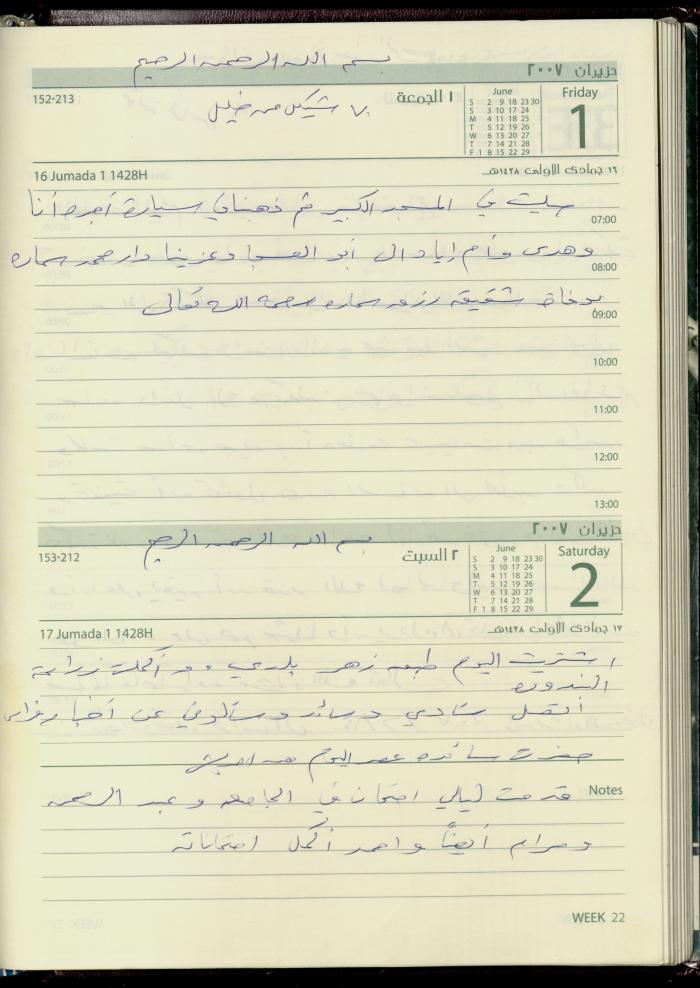 بسم الله الرحمن الرحيم
حزيران ٢٠٠٧
152-213
١ الجمعة
June
S 2 9 16 23 30
S 3 10 17 24
M 4 11 18 25
T 5 12 19 26
W 6 13 20 27
T 7 14 21 28
F 1 8 15 22 29
Friday
1
٧٠ شيكل من خليل
16 Jumada 1 1428H
١٦ جمادى الأولى ١٤٢٨هـ
صليت في المسجد الكبير ثم ذهبنا في سيارة أجرة أنا
07:00
وهدى وأم إياد ال أبو العسجا وعزينا دار محمد سماره
08:00
بوفاة شقيقه رزق سماره رحمه الله تعالى
09:00
10:00
11:00
12:00
13:00
حزيران ٢٠٠٧
بسم الله الرحمن الرحيم
153-212
٢ السبت
June
S 2 9 16 23 30
S 3 10 17 24
M 4 11 18 25
T 5 12 19 26
W 6 13 20 27
T 7 14 21 28
F 1 8 15 22 29
Saturday
2
17 Jumada 1 1428H
١٧ جمادى الأولى ١٤٢٨هـ
اشتريت اليوم طبعة زهر بلدي، وأكملت زراعة
البندورة
أتصل شادي ورائد وسألوني عن أخبار
حضرت سائده عصر اليوم من
Notes
قدمت ليالي امتحان في الجامعه وعبد الرحمن
ومرام أيضاً واحمد أكمل امتحاناته
WEEK 22